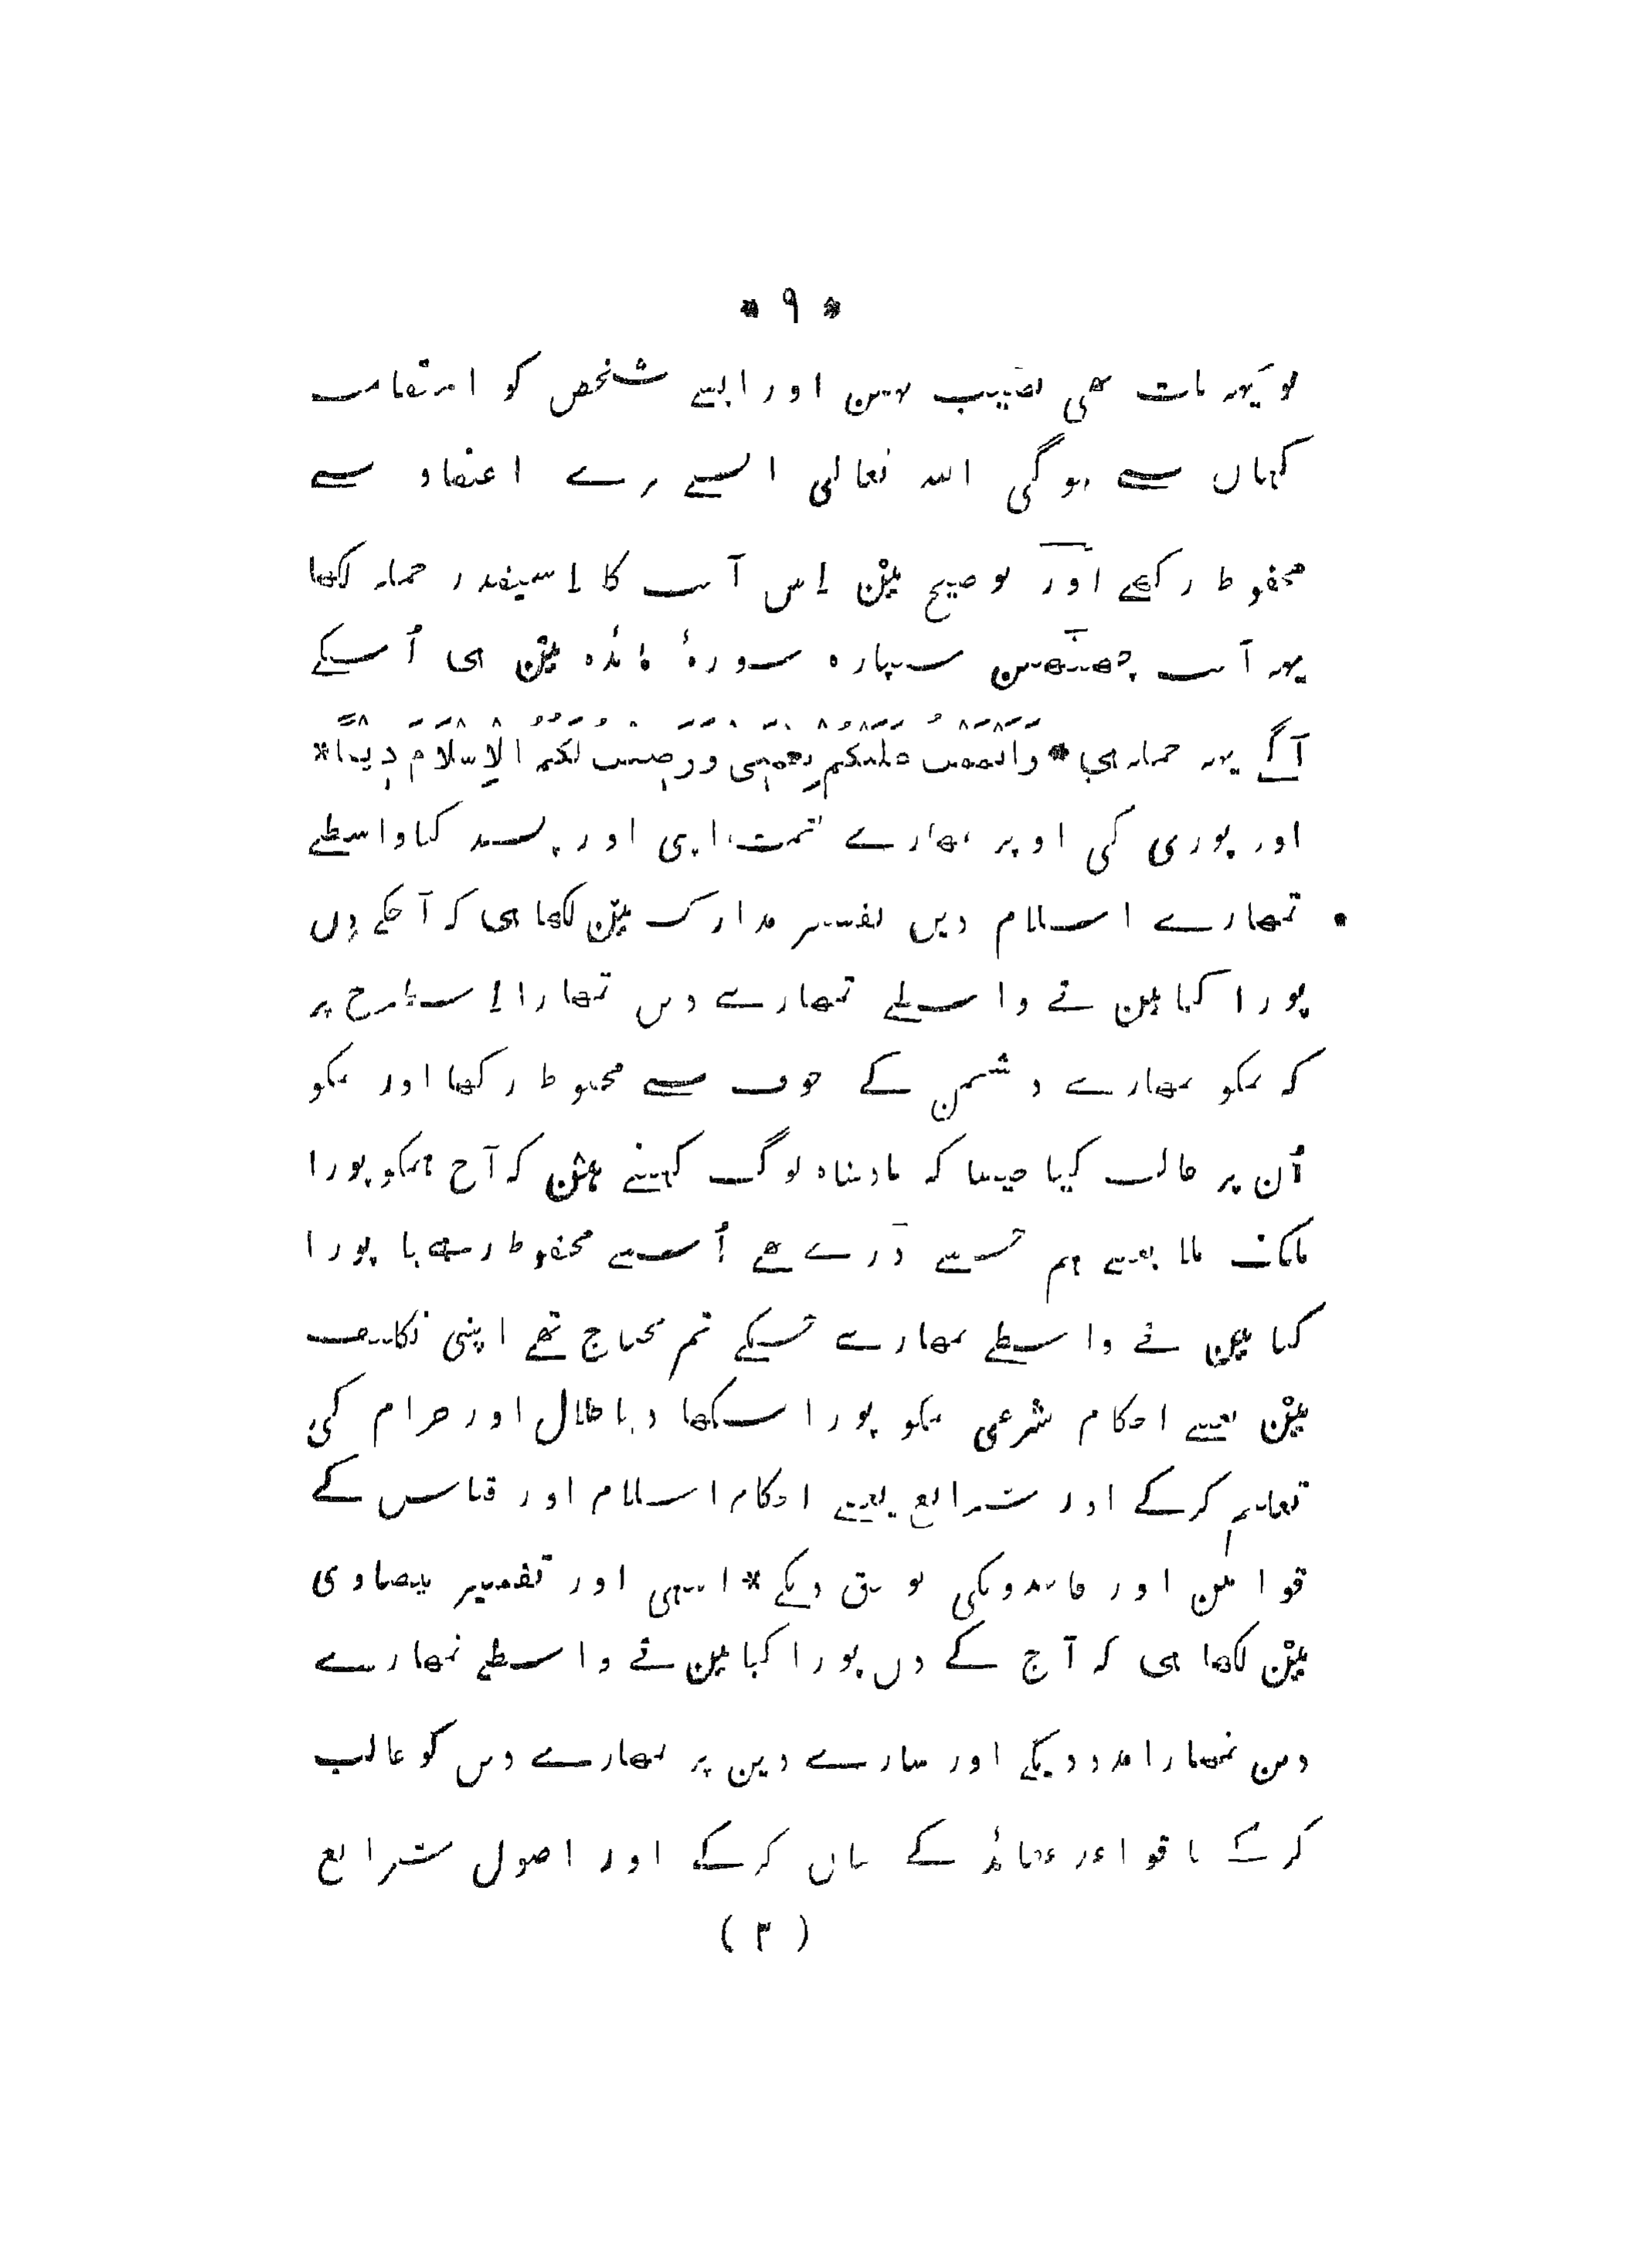 * ۹ *
تو یہہ بات بھی نصیب نہین اور ایسے شخص کو استقامت
کہان سے ہوگی اللہ تعالی ایسے برے اعتقاد سے
محفوظ رکھے اور توضیح مین اِس آیت کا اِسیقدر جملہ لکھا
یہہ آیت چھٹھین سیپارہ سورۂ مائدہ مین ہی اُسکے
آگے یہہ جملہ ہی * وَاَتْمَمْتُ عَلَيْكُمْ نِعْمَتِي وَرَضِيتُ لَكُمُ الْاِسْلَامَ دِيْنًا *
اور پوری کی اوپر تمھارے نعمت اپنی اور پسند کیا واسطے
تمھارے اسلام دین تفسیر مدارک مین لکھا ہی کہ آجکے دِن
پورا کیا مین نے واسطے تمھارے دین تمھارا اِسطرح پر
کہ تمکو تمھارے دشمن کے خوف سے محفوظ رکھا اور تمکو
اُن پر غالب کیا جیسا کہ بادشاہ لوگ کہتے ہین کہ آج ہمکو پورا
ملک ملا یعنے ہم جس سے ڈرتے تھے اُس سے محفوظ رہے یا پورا
کیا مین نے واسطے تمھارے جسکے تم محتاج تھے اپنی تکلیف
مین یعنے احکام شرعی تمکو پورا سکھا دیا حلال اور حرام کی
تعلیم کرکے اور شرایع یعنے احکام اسلام اور قیاس کے
قوانین اور قاعدونکی توفیق دیکے * انتہی اور تفسیر بیضاوی
مین لکھا ہی کہ آج کے دن پورا کیا مین نے واسطے تمھارے
دین تمھارا مدد دیکے اور سارے دین پر تمھارے دین کو غالب
کرکے یا قواعد عقائد کے بیان کرکے اور اصول شرایع
( ۳ )